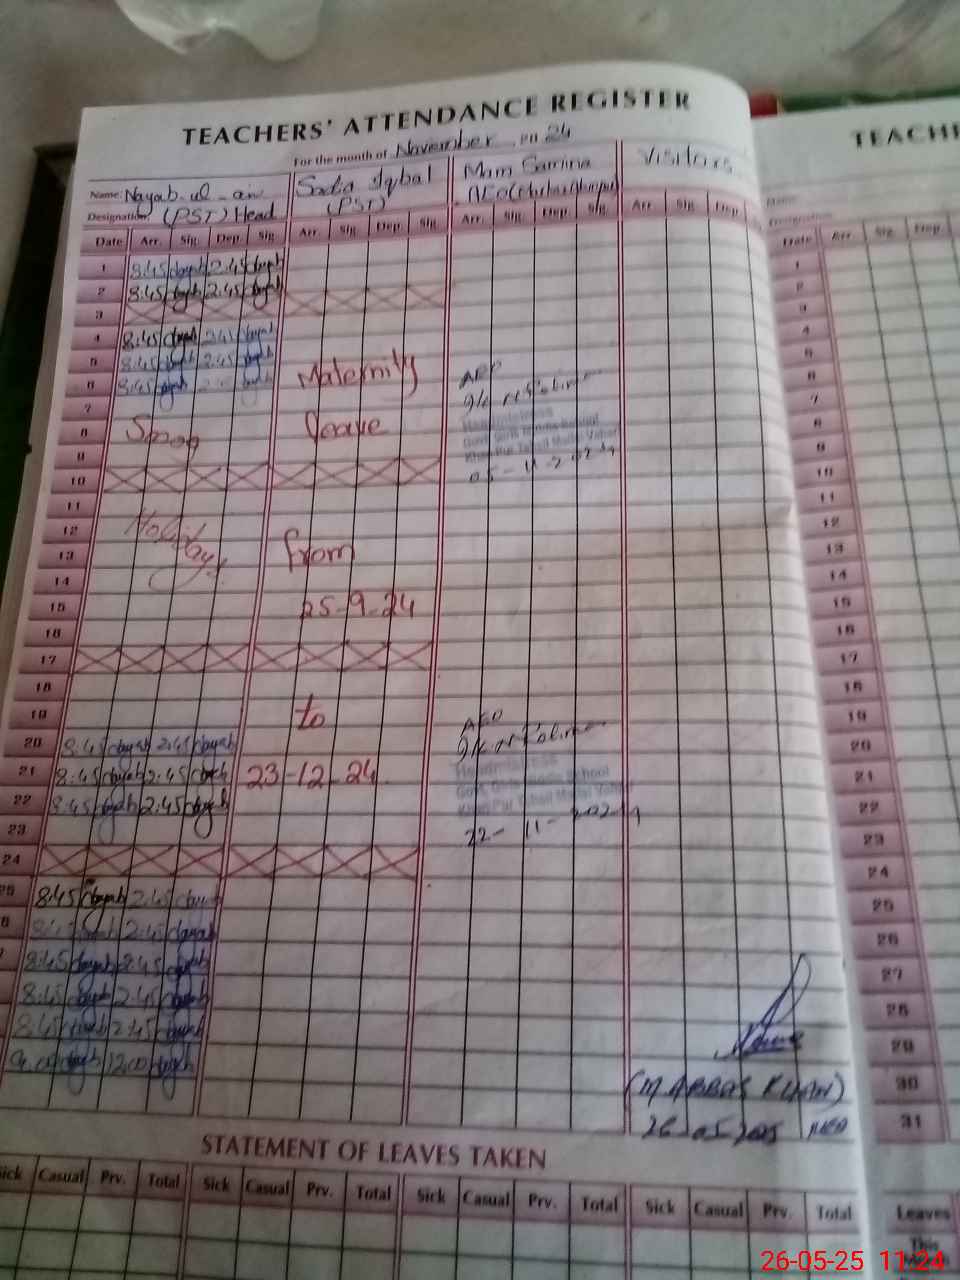 TEACHERS' ATTENDANCE REGISTER
For the month of November 20 24
Name: Nayab-ul-ain
Designation (PST) Head
Sadia Iqbal
(PST)
Mam Samina
Visitors
Date Arr. Sig. Dep. Sig. Arr. Sig. Dep. Sig. Arr. Sig. Dep. Sig. Arr. Sig. Dep.
1 8:45 Nayab 2:45 Nayab
2 8:45 Nayab 2:45 Nayab
3
4 8:45 Nayab 2:45 Nayab
5 8:45 Nayab 2:45 Nayab
6 8:45 Nayab 2:45 Nayab
Maternity
7
8 Smog
leave
9
10
05-11-2024
11
12 Holidays
13
from
14
15
25-9-24
16
17
18
19
to
20 8:45 Nayab 2:45 Nayab
21 8:45 Nayab 2:45 Nayab
23-12-24
Headmistress
Govt. Girls School
22 8:45 Nayab 2:45 Nayab
22-11-2024
23
24
25 8:45 Nayab 2:45 Nayab
8:45 Nayab 2:45 Nayab
8:45 Nayab 2:45 Nayab
8:45 Nayab 2:45 Nayab
8:45 Nayab 2:45 Nayab
9:00 Nayab 12:00 Nayab
(M. ABBAS KHAN)
26-05-2025
STATEMENT OF LEAVES TAKEN
Sick Casual Prv. Total Sick Casual Prv. Total Sick Casual Prv. Total Sick Casual Prv. Total
TEACHE
Name:
Designation
Date Arr. Sig. Dep.
1
2
3
4
5
6
7
8
9
10
11
12
13
14
15
16
17
18
19
20
21
22
23
24
25
26
27
28
29
30
31
Leaves
This
Month
26-05-25 11:24